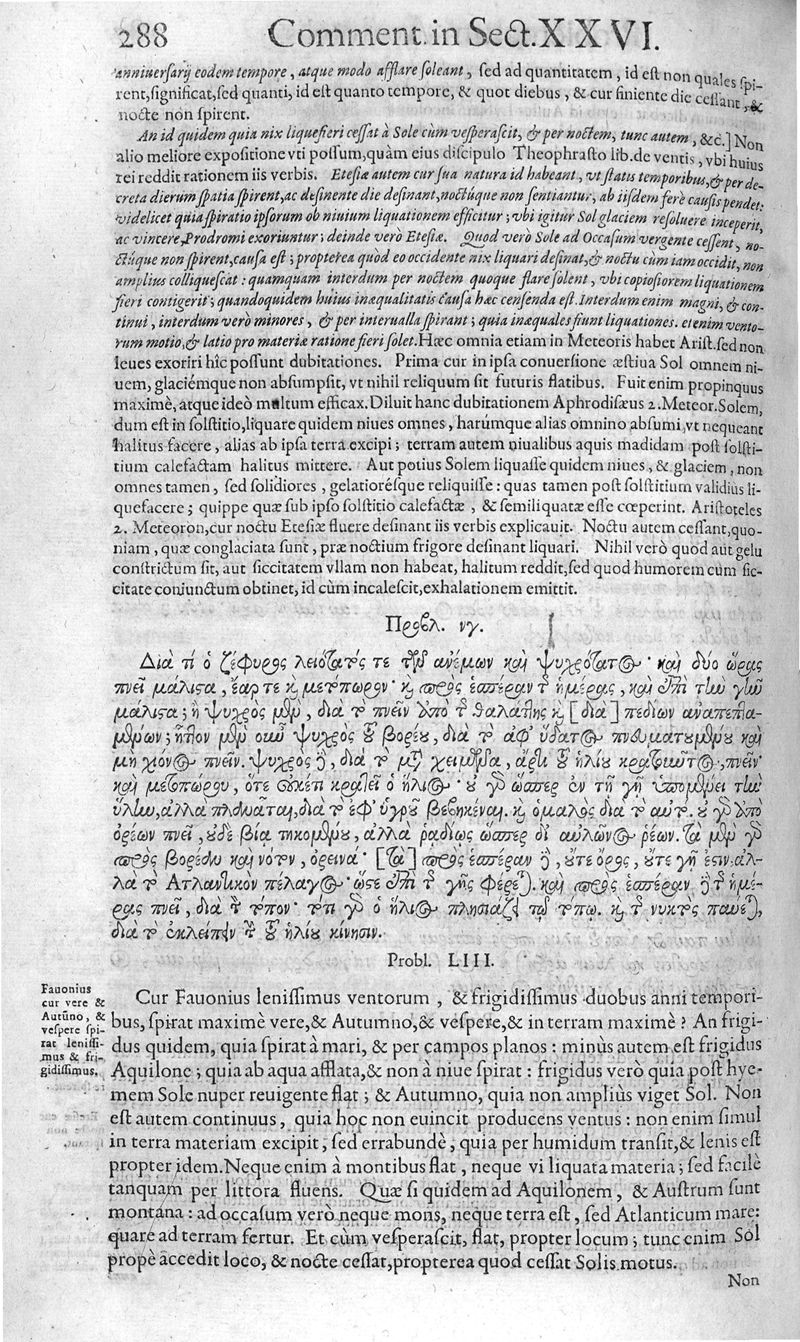 288 Comment. in Sect. XXVI.
anniuersarij eodem tempore, atque modo afflare soleant, sed ad quantitatem, id est non quales spi-
rent, significat, sed quanti, id est quanto tempore, & quot diebus, & cur finiente die cessant, &
nocte non spirent.
An id quidem quia nix liquefieri cessat à Sole cùm vesperascit, & per noctem, tunc autem, &c.] Non
alio meliore expositione vti possum, quàm eius discipulo Theophrasto lib. de ventis, vbi huius
rei reddit rationem iis verbis. Etesiæ autem cur sua natura id habeant, vt statis temporibus, & per de-
creta dierum spatia spirent, ac desinente die desinant, noctúque non sentiantur, ab iisdem ferè causis pendet:
videlicet quia spiratio ipsorum ob niuium liquationem efficitur; vbi igitur Sol glaciem resoluere inceperit,
ac vincere, Prodromi exoriuntur; deinde verò Etesiæ. Quod verò Sole ad Occasum vergente cessent, no-
ctúque non spirent, causa est; propterea quòd eo occidente nix liquari desinat, & noctu cùm iam occidit, non
amplius colliquescat: quamquam interdum per noctem quoque flare solent, vbi copiosiorem liquationem
fieri contigerit; quandoquidem huius inæqualitatis causa hæc censenda est. Interdum enim magni, & con-
tinui, interdum verò minores, & per interualla spirant; quia inæquales fiunt liquationes. etenim vento-
rum motio, & latio pro materiæ ratione fieri solet. Hæc omnia etiam in Meteoris habet Arist. sed non
leues exoriri hîc possunt dubitationes. Prima cur in ipsa conuersione æstiua Sol omnem ni-
uem, glaciémque non absumpsit, vt nihil reliquum sit futuris flatibus. Fuit enim propinquus
maximè, atque ideò multum efficax. Diluit hanc dubitationem Aphrodisæus 2. Meteor. Solem,
dum est in solstitio, liquare quidem niues omnes, harúmque alias omnino absumi, vt nequeant
halitus facere, alias ab ipsa terra excipi; terram autem niualibus aquis madidam post solsti-
tium calefactam halitus mittere. Aut potius Solem liquasse quidem niues, & glaciem, non
omnes tamen, sed solidiores, gelatiorésque reliquisse: quas tamen post solstitium validius li-
quefacere; quippe quæ sub ipso solstitio calefactæ, & semiliquatæ esse cœperint. Aristoteles
2. Meteoron, cur noctu Etesiæ fluere desinant iis verbis explicauit. Noctu autem cessant, quo-
niam, quæ conglaciata sunt, præ noctium frigore desinant liquari. Nihil verò quod aut gelu
constrictum sit, aut siccitatem vllam non habeat, halitum reddit, sed quod humorem cùm sic-
citate conjunctum obtinet, id cùm incalescit, exhalationem emittit.
Προβλ. νγ.
Διὰ τί ὁ ζέφυρος λειότατός τε τῶν ἀνέμων καὶ ψυχρότατος· καὶ δύο ὥρας
πνεῖ μάλιστα, ἔαρ τε καὶ μετόπωρον· καὶ πρὸς ἑσπέραν τῆς ἡμέρας, καὶ ἐπὶ τὴν γῆν
μάλιστα; ἢ ψυχρὸς μὲν, διὰ τὸ πνεῖν ἀπὸ τῆς θαλάττης καὶ [διὰ] πεδίων ἀναπεπτα-
μένων; ἧττον μὲν οὖν ψυχρὸς τοῦ βορέου, διὰ τὸ ἀφ' ὕδατος πνευματουμένου καὶ
μὴ χιόνος πνεῖν. ψυχρὸς δὲ, διὰ τὸ μετὰ χειμῶνα, ἄρτι τοῦ ἡλίου κρατοῦντος, πνεῖν·
καὶ μετοπώρου, ὅτε οὐκέτι κρατεῖ ὁ ἥλιος· οὐ γὰρ ὥσπερ ἐν τῇ γῇ ὑπομένει τὴν
ὕλην, ἀλλὰ πλανᾶται, διὰ τὸ ἐφ' ὑγροῦ βεβηκέναι. καὶ ὁμαλὸς διὰ τὸ αὐτό. οὐ γὰρ ἀπὸ
ὀρέων πνεῖ, οὐδὲ βίᾳ τηκομένου, ἀλλὰ ῥᾳδίως ὥσπερ δι' αὐλῶνος ῥέων. τὰ μὲν γὰρ
πρὸς βορέαν καὶ νότον, ὀρεινά· [τὰ] πρὸς ἑσπέραν δὲ, οὔτε ὄρος, οὔτε γῆ ἐστιν, ἀλ-
λὰ τὸ Ἀτλαντικὸν πέλαγος· ὥστε ἐπὶ τῆς γῆς φέρεται. καὶ πρὸς ἑσπέραν δὲ τῆς ἡμέ-
ρας πνεῖ, διὰ τὸν τόπον· τότε γὰρ ὁ ἥλιος πλησιάζει τῷ τόπῳ. καὶ τῆς νυκτὸς παύεται,
διὰ τὸ ἐκλείπειν τὴν τοῦ ἡλίου κίνησιν.
Probl. LIII.
Fauonius
cur vere &
Autūno, &
vespere spi-
rat lenissi-
mus & fri-
gidissimus.
Cur Fauonius lenissimus ventorum, & frigidissimus duobus anni tempori-
bus, spirat maximè vere, & Autumno, & vespere, & in terram maximè? An frigi-
dus quidem, quia spirat à mari, & per campos planos: minùs autem est frigidus
Aquilone; quia ab aqua afflata, & non à niue spirat: frigidus verò quia post hye-
mem Sole nuper reuigente flat; & Autumno, quia non ampliùs viget Sol. Non
est autem continuus, quia hoc non euincit producens ventus: non enim simul
in terra materiam excipit, sed errabundè, quia per humidum transit, & lenis est
propter idem. Neque enim à montibus flat, neque vi liquata materia; sed facilè
tanquam per littora fluens. Quæ si quidem ad Aquilonem, & Austrum sunt
montana: ad occasum verò neque mons, neque terra est, sed Atlanticum mare:
quare ad terram fertur. Et cùm vesperascit, flat, propter locum; tunc enim Sol
propè accedit loco, & nocte cessat, propterea quod cessat Solis motus.
Non